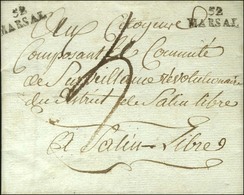 52
MARSAL
52
MARSAL
Aux Citoyens
Composant le Committé
de Surveillance révolutionnaire
du district de Salin libre
a Salin-Libre